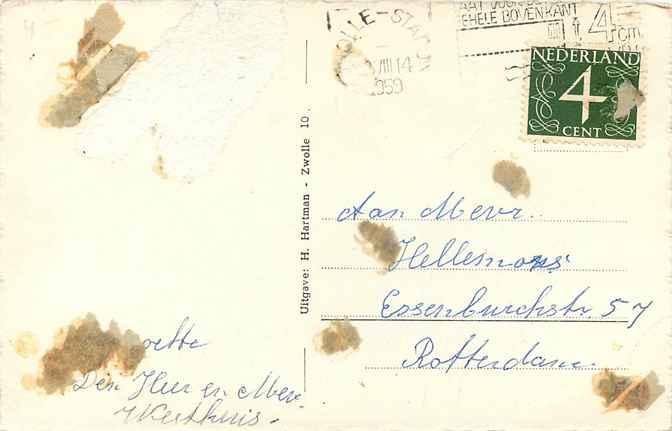 OLLE-STA
VIII 14
1959
EHELE BOVENKANT
14 cm
NEDERLAND
4
CENT
Uitgave: H. Hartman - Zwolle 10.
Aan Mevr.
Essenburchstr. 57
Rotterdam.
Den Heer en Mevr